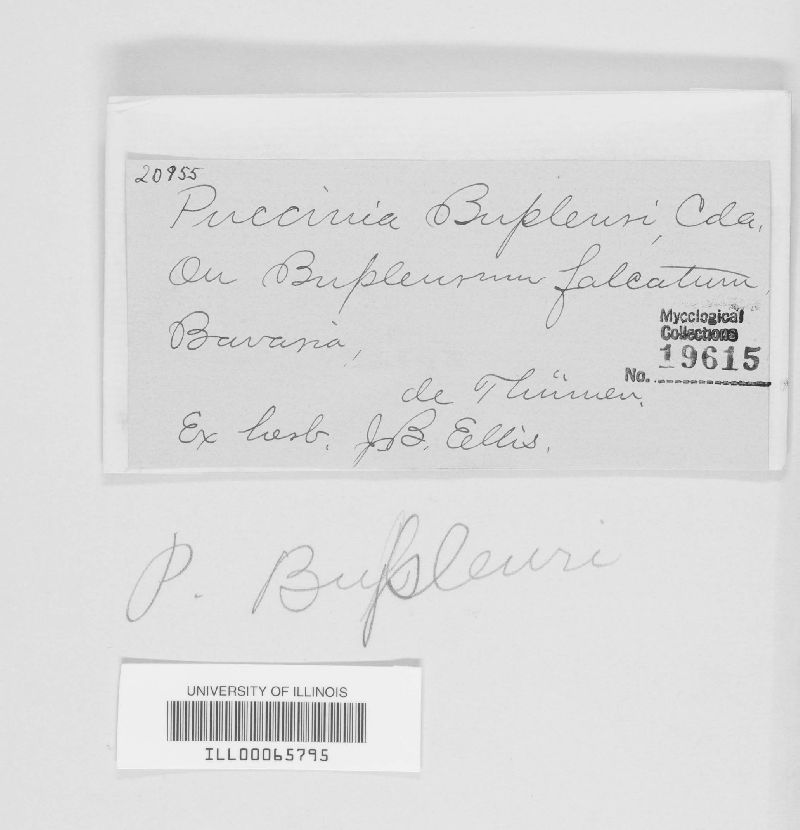 20955
Puccinia Bupleuri, Cda.
On Bupleurum falcatum,
Bavaria,
Mycological
Collections
No. 19615
de Thümen.
Ex herb. J.B. Ellis.
P. Bupleuri
UNIVERSITY OF ILLINOIS
ILL00065795